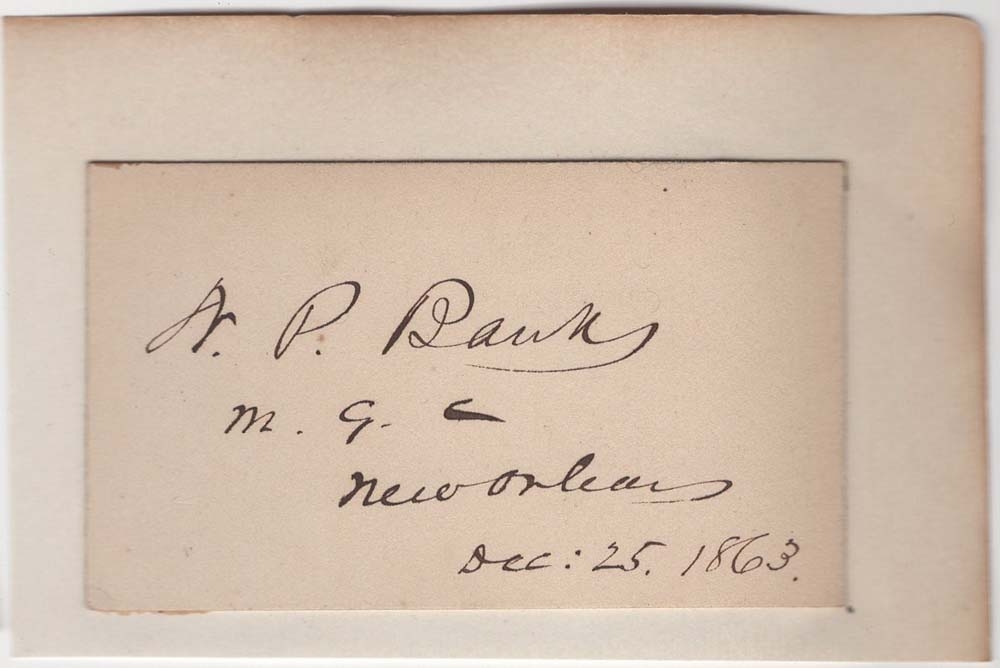 N. P. Banks
M. G. C
New Orleans
Dec: 25. 1863.